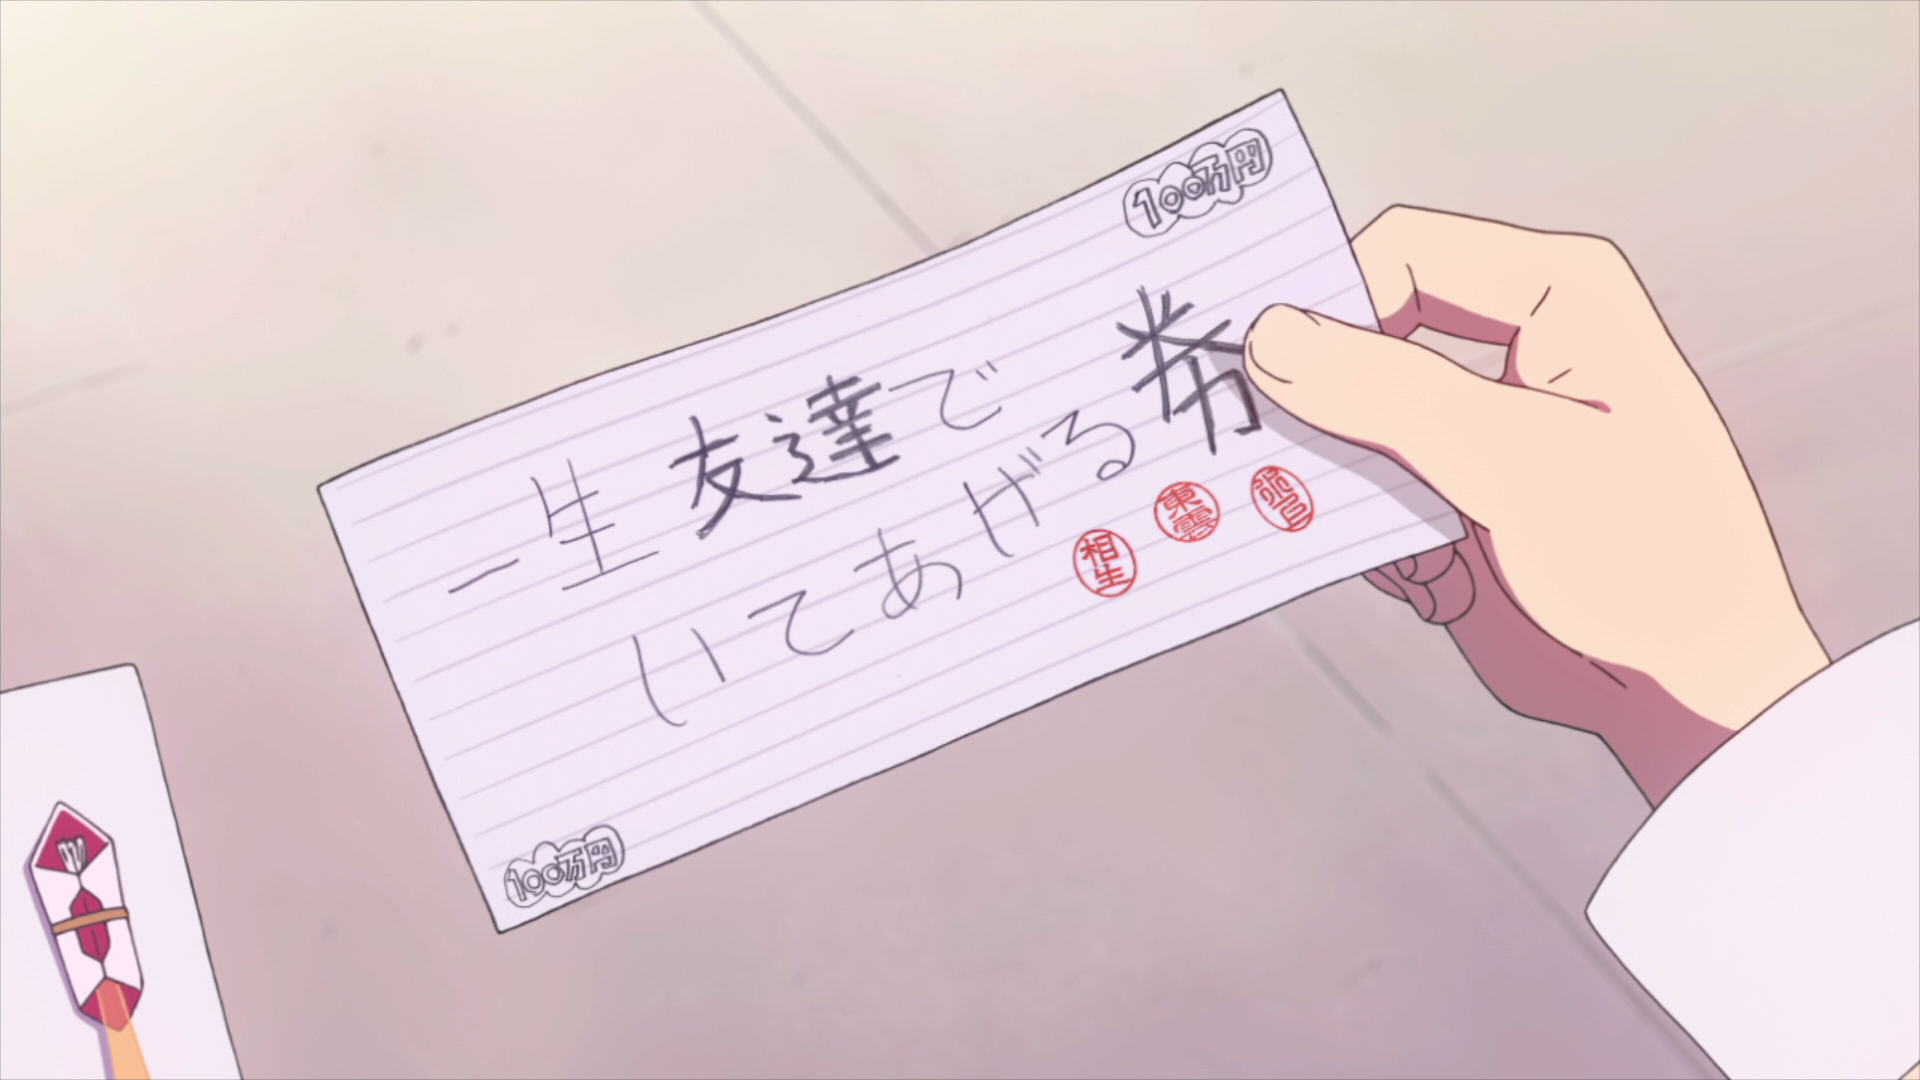 100万円
一生友達で
いてあげる券
相生
東雲
水上
100万円